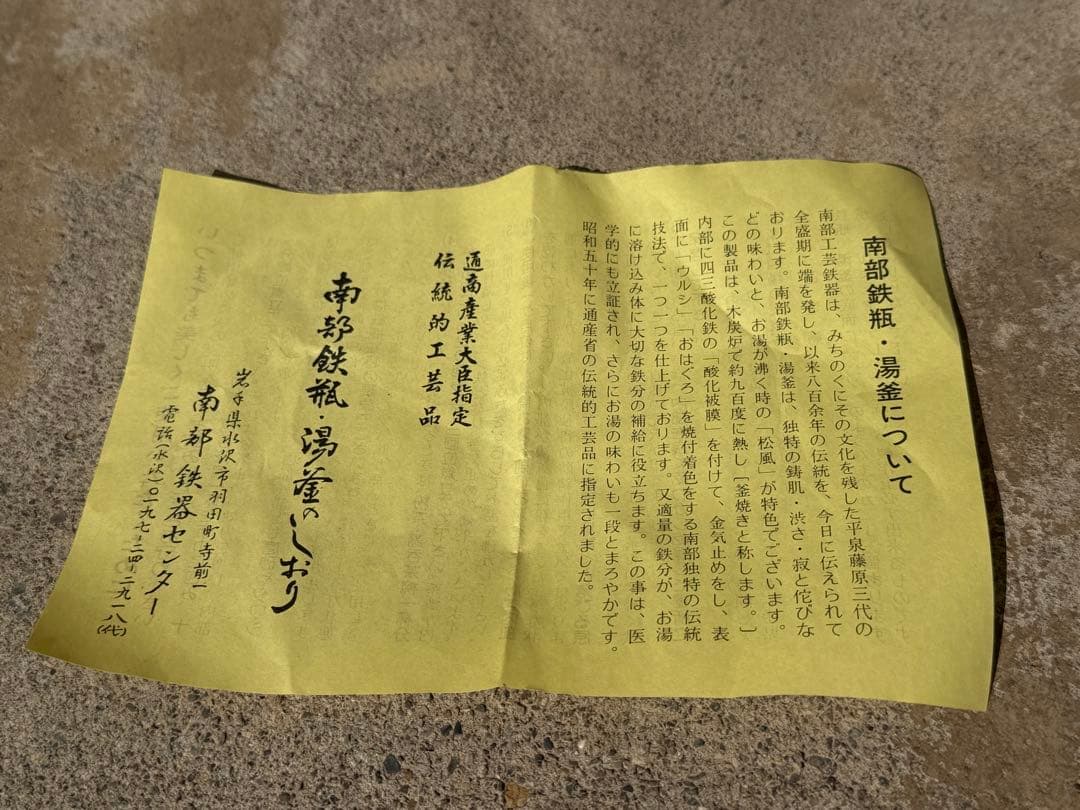 南部鉄瓶・湯釜について
南部工芸鉄器は、みちのくにその文化を残した平泉藤原三代の
全盛期に端を発し、以来八百余年の伝統を、今日に伝えられて
おります。南部鉄瓶・湯釜は、独特の鋳肌・渋さ・寂と侘びな
どの味わいと、お湯が沸く時の「松風」が特色でございます。
この製品は、木炭炉で約九百度に熱し〔釜焼きと称します。〕
内部に四三酸化鉄の「酸化被膜」を付けて、金気止めをし、表
面に「ウルシ」「おはぐろ」を焼付着色をする南部独特の伝統
技法で、一つ一つを仕上げております。又適量の鉄分が、お湯
に溶け込み体に大切な鉄分の補給に役立ちます。この事は、医
学的にも立証され、さらにお湯の味わいも一段とまろやかです。
昭和五十年に通産省の伝統的工芸品に指定されました。
通商産業大臣指定
伝統的工芸品
南部鉄瓶・湯釜のしおり
岩手県水沢市羽田町寺前一
南部鉄器センター
電話(水沢)〇一九七-二四-二九一八(代)